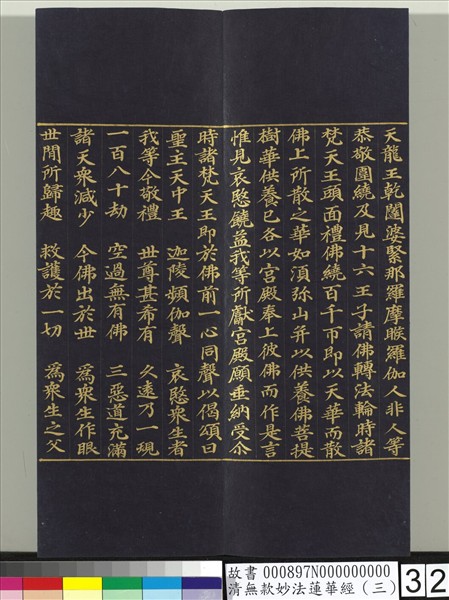 天龍王乾闥婆緊那羅摩睺羅伽人非人等
恭敬圍繞及見十六王子請佛轉法輪時諸
梵天王頭面禮佛繞百千帀即以天華而散
佛上所散之華如須弥山并以供養佛菩提
樹華供養已各以宮殿奉上彼佛而作是言
惟見哀愍饒益我等所獻宮殿願垂納受尒
時諸梵天王即於佛前一心同聲以偈頌曰
聖主天中王　迦陵頻伽聲　哀愍衆生者
我等今敬禮　世尊甚希有　久遠乃一現
一百八十劫　空過無有佛　三惡道充滿
諸天衆減少　今佛出於世　爲衆生作眼
世間所歸趣　救護於一切　爲衆生之父
故書 000897N000000000
清無款妙法蓮華經（三）
32